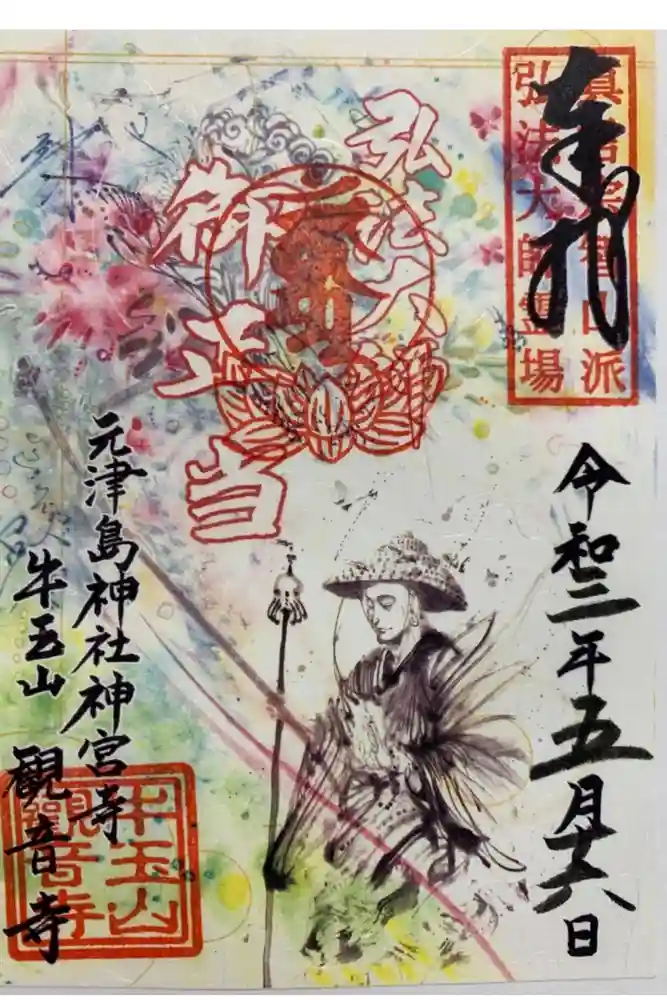 奉拝
眞言宗智山派
弘法大師霊場
令和三年五月十六日
弘法大師
御正当
元津島神社神宮寺
牛玉山 觀音寺
牛玉山
觀音寺